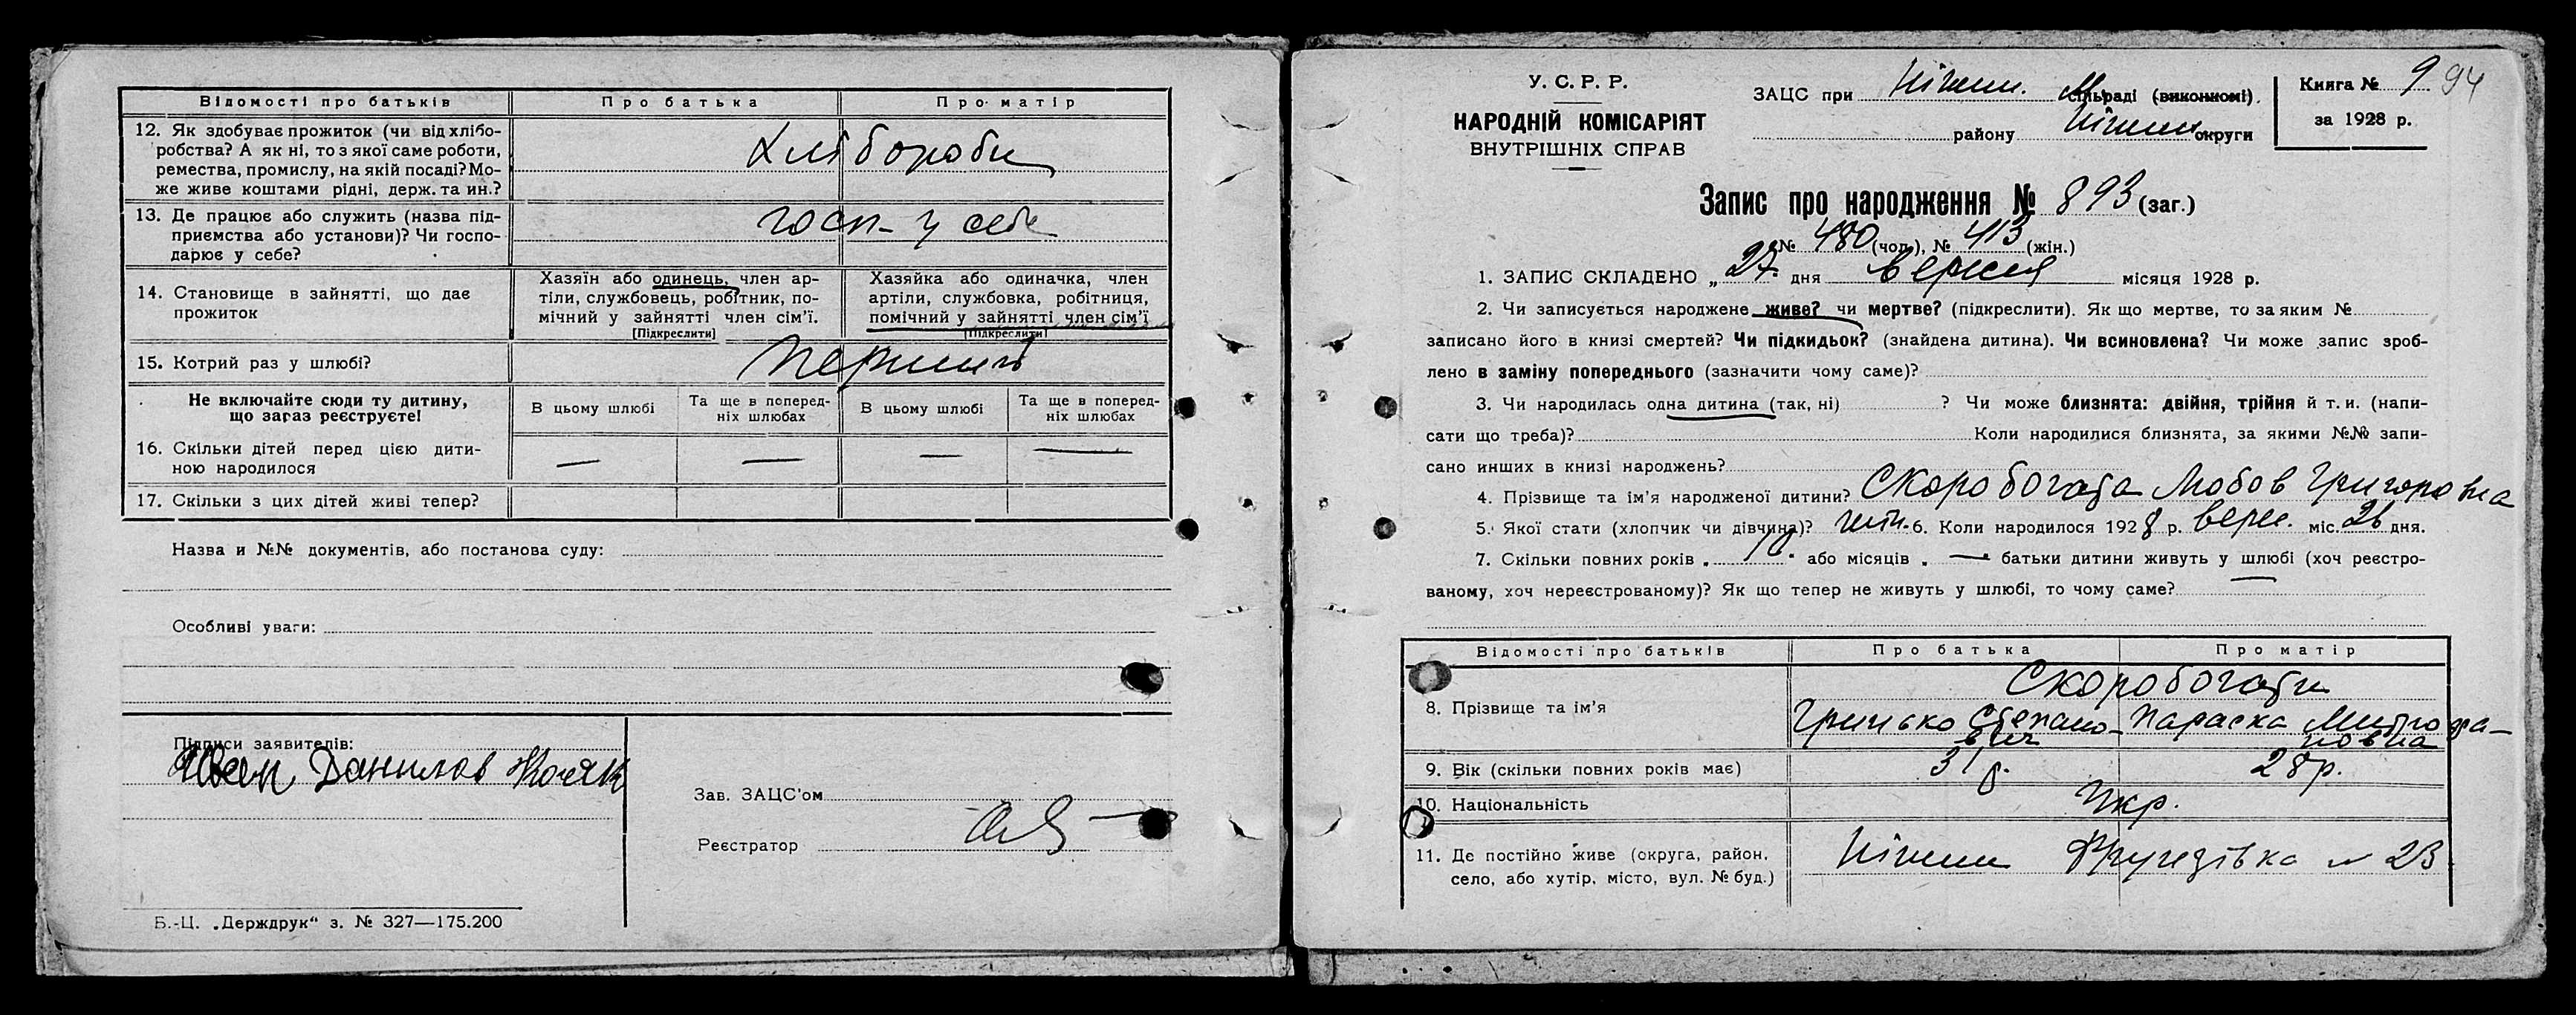 Відомості про батьків Про батька Про матір
12. Як здобуває прожиток (чи від хлібо-
робства? А як ні, то з якої саме роботи,
ремества, промислу, на якій посаді? Мо-
же живе коштами рідні, держ. та ин.?
Хлібороби
13. Де працює або служить (назва під-
приємства або установи)? Чи госпо-
дарює у себе?
госп- у себе
14. Становище в зайнятті, що дає
прожиток
Хазяїн або одинець, член ар-
тілі, службовець, робітник, по-
мічний у зайнятті член сім'ї.
[Підкреслити]
Хазяйка або одиначка, член
артілі, службовка, робітниця,
помічний у зайнятті член сім'ї
[Підкреслити]
15. Котрий раз у шлюбі?
Не включайте сюди ту дитину,
що зараз реєструєте!
В цьому шлюбі
Та ще в поперед-
ніх шлюбах
В цьому шлюбі
Та ще в поперед-
ніх шлюбах
16. Скільки дітей перед цією дити-
ною народилося
— — — —
17. Скільки з цих дітей живі тепер?
Назва и №№ документів, або постанова суду:
Особливі уваги:
Підписи заявителів:
Іван Данилов
Зав. ЗАЦС'ом
Реєстратор
Б.-Ц. „Держдрук“ з. № 327—175.200
У. С. Р. Р.
НАРОДНІЙ КОМІСАРІЯТ
ВНУТРІШНІХ СПРАВ
ЗАЦС при Ніжин. М. сільраді (виконкомі).
району Ніжин округи
Книга № 9 94
за 1928 р.
Запис про народження № 893 (заг.)
№ 480 (чол.), № 413 (жін.)
1. ЗАПИС СКЛАДЕНО „27 дня вересня місяця 1928 р.
2. Чи записується народжене живе? чи мертве? (підкреслити). Як що мертве, то за яким №
записано його в книзі смертей? Чи підкидьок? (знайдена дитина). Чи всиновлена? Чи може запис зроб-
лено в заміну попереднього (зазначити чому саме)?
3. Чи народилась одна дитина (так, ні) ? Чи може близнята: двійня, трійня й т. и. (напи-
сати що треба)? Коли народилися близнята, за якими №№ запи-
сано инших в книзі народжень?
4. Прізвище та ім'я народженої дитини? Скоробогата Любов Григоровна
5. Якої стати (хлопчик чи дівчина)? жін. 6. Коли народилося 1928 р. верес. міс. 26 дня.
7. Скільки повних років „ 10 “ або місяців „ — “ батьки дитини живуть у шлюбі (хоч реєстро-
ваному, хоч нереєстрованому)? Як що тепер не живуть у шлюбі, то чому саме?
Відомості про батьків Про батька Про матір
Скоробогати
8. Прізвище та ім'я Грицько Степано- Параска Митрофа-
вич новна
9. Вік (скільки повних років має) 31 р. 28 р.
10. Національність Укр.
11. Де постійно живе (округа, район,
село, або хутір, місто, вул. № буд.)
Ніжин Фрунзівка № 23